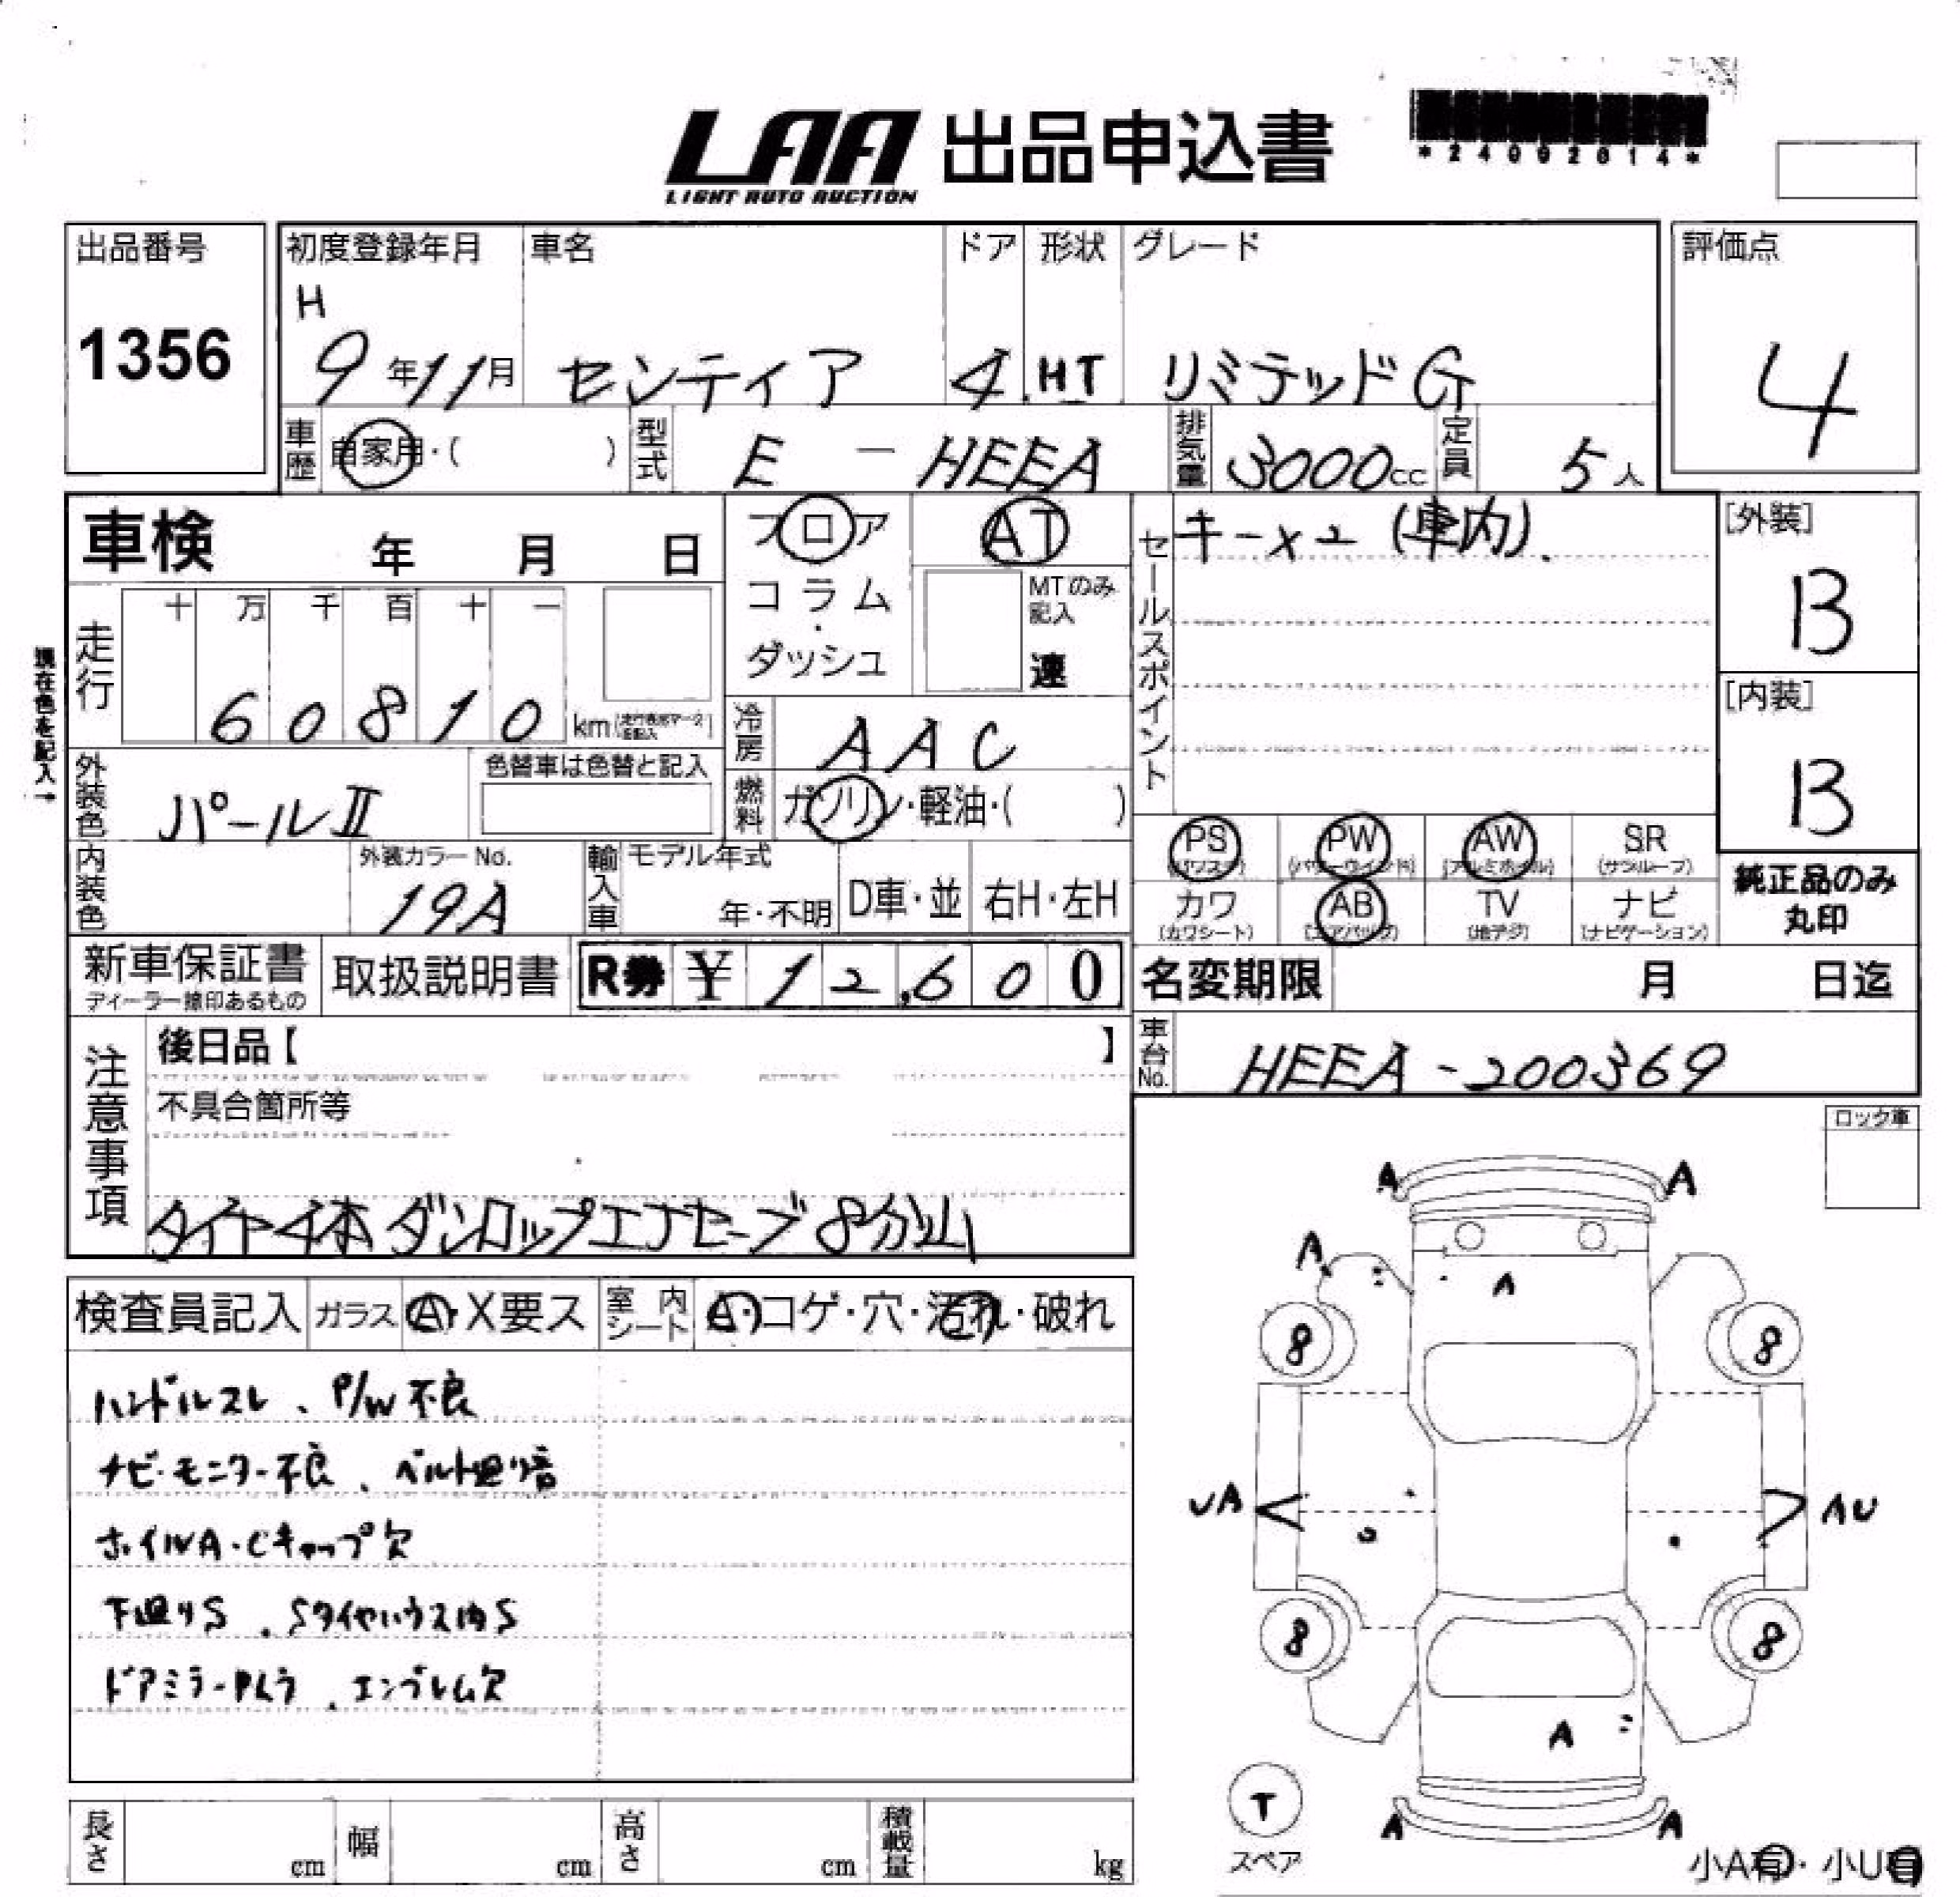 LAA 出品申込書
LIGHT AUTO AUCTION
*24092614*
出品番号
1356
初度登録年月 車名 ドア 形状 グレード
H
9年11月 センティア 4 HT リミテッドG
評価点
4
車歴 自家用・( ) 型式 E - HEEA 排気量 3000cc 定員 5人
車検 年 月 日
フロア AT
コラム・ダッシュ
MTのみ記入
速
セールスポイント
キーx2 (車内).
[外装]
B
[内装]
B
現在色を記入→
走行 十 万 千 百 十 一
60810 km
冷房 AAC
外装色 パールII 色替車は色替と記入
燃料 ガソリン・軽油・( )
内装色 外装カラーNo. 19A
輸入車 モデル年式 年・不明 D車・並 右H・左H
PS PW AW SR
(パワステ) (パワーウインド) (アルミホイル) (サンルーフ)
カワ AB TV ナビ
(カワシート) (エアバッグ) (地デジ) (ナビゲーション)
純正品のみ
丸印
新車保証書 取扱説明書 R券 ¥12,600
ディーラー捺印あるもの
名変期限 月 日迄
車台No. HEEA-200369
注意事項
後日品【 】
不具合箇所等
タイヤ4本 ダンロップエナセーブ 8分山
ロック車
検査員記入 ガラス A・X要ス 室内シート A・コゲ・穴・汚れ・破れ
ハンドルスレ、P/W不良
ナビ・モニター不良、ベルト廻り音
ホイルA・Cキャップ欠
下廻りS、Sタイヤハウス内S
ドアミラー 、エンブレム欠
A A
A
A
8 8
UA AU
8 8
A
T
スペア
A A
小A有・小U有
長さ cm 幅 cm 高さ cm 積載量 kg